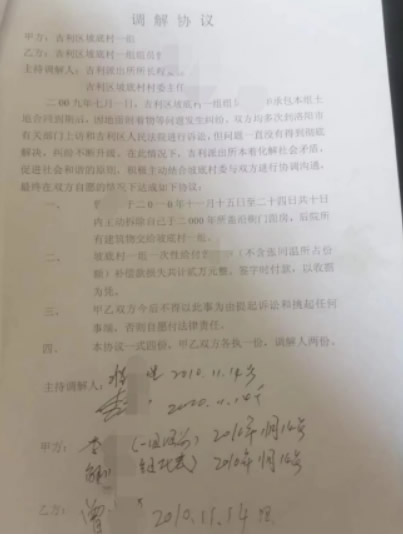 调解协议
甲方:吉利区坡底村一组
乙方:吉利区坡底村一组组员
主持调解人:吉利派出所所长程
吉利区坡底村村委主任
二00九年七月一日,吉利区坡底村一组组 承包本组土
地合同到期后,因地面附着物等问题发生纠纷,双方均多次到洛阳市
有关部门上访和吉利区人民法院进行诉讼,但问题一直没有得到彻底
解决,纠纷不断升级。在此情况下,吉利派出所本着化解社会矛盾,
促进社会和谐的原则,积极主动结合坡底村委与双方进行协调沟通,
最终在双方自愿的情况下达成如下协议:
一、 于二0一0年十一月十五日至二十四日共十日
内主动拆除自己于二000年所盖沿街门面房,后院所
有建筑物交给坡底村一组。
二、 坡底村一组一次性给付 (不含连同温所占份
额)补偿款损失共计贰万元整。签字时付款,以收据
为凭。
三、 甲乙双方今后不得以此事为由提起诉讼和挑起任何
事端,否则自愿付法律责任。
四、 本协议一式四份,甲乙双方各执一份,调解人两份。
主持调解人: 2010.11.14号
2010.11.14号
甲方:李 (一组组长) 2010年11月14号
(组代表) 2010年11月14号
乙方:曾 2010.11.14